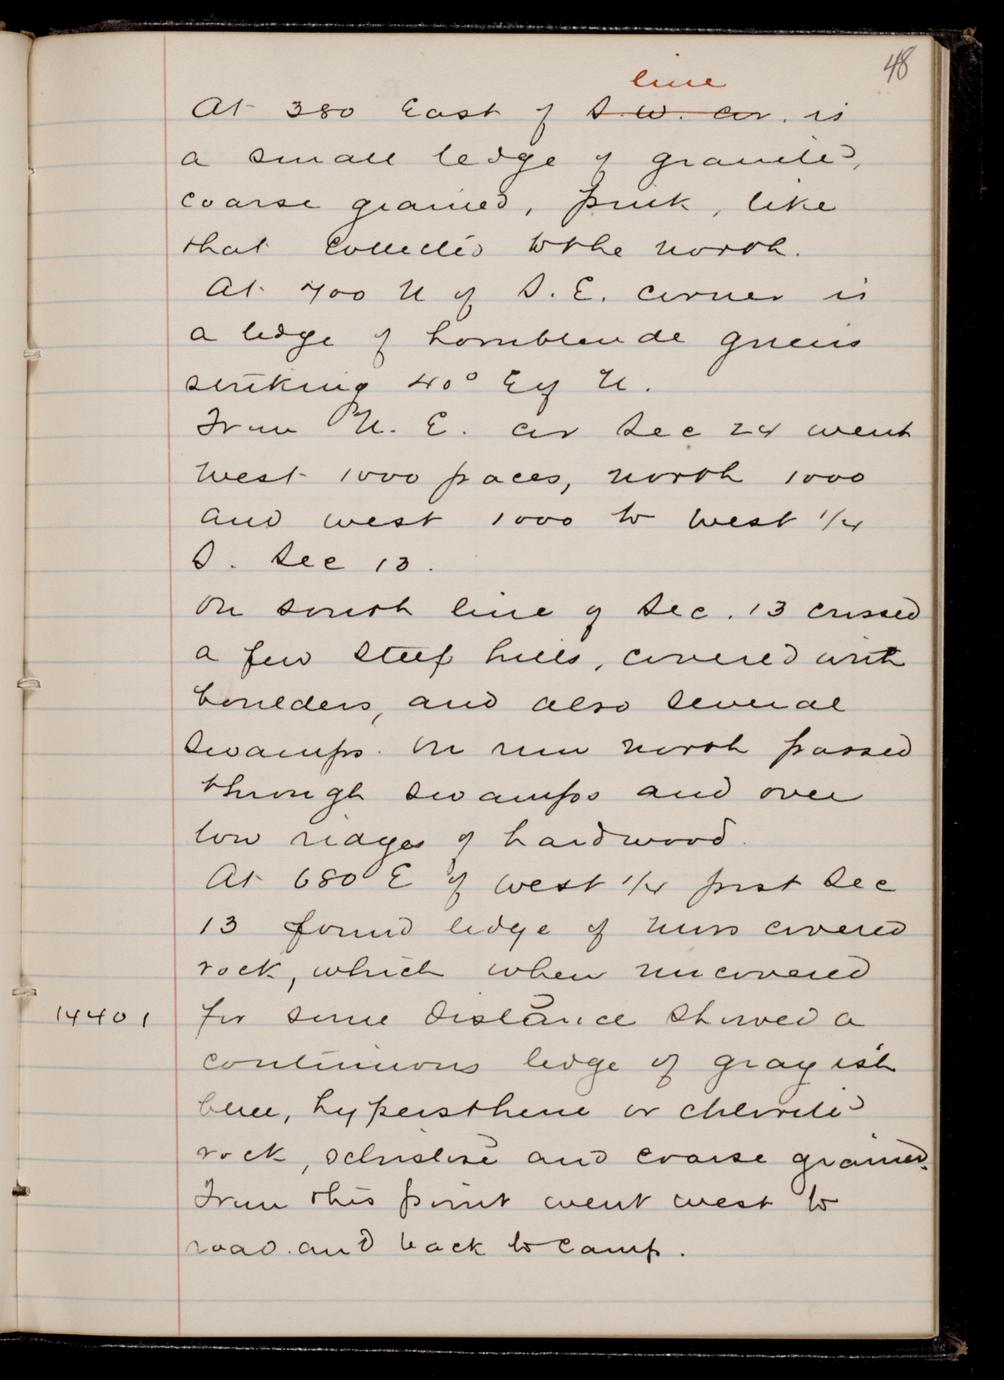 48
line
At 380 East of S.W. cor. is
a small ledge of granite,
coarse grained, pink, like
that collected to the north.
At 700 N of S.E. corner is
a ledge of hornblende gneiss
striking 40° E of N.
From N.E. cor Sec 24 went
West 1000 paces, north 1000
and west 1000 to West 1/4
S. Sec 13.
On south line of Sec. 13 crossed
a few steep hills, covered with
boulders, and also several
swamps. On run north passed
through swamps and over
low ridges of hardwood.
At 680 E of West 1/4 post Sec
13 found ledge of moss covered
rock, which when uncovered
14401 for some distance showed a
continuous ledge of grayish
blue, hypersthene or chlorite
rock, schistose and coarse grained.
From this point went west to
road and back to camp.